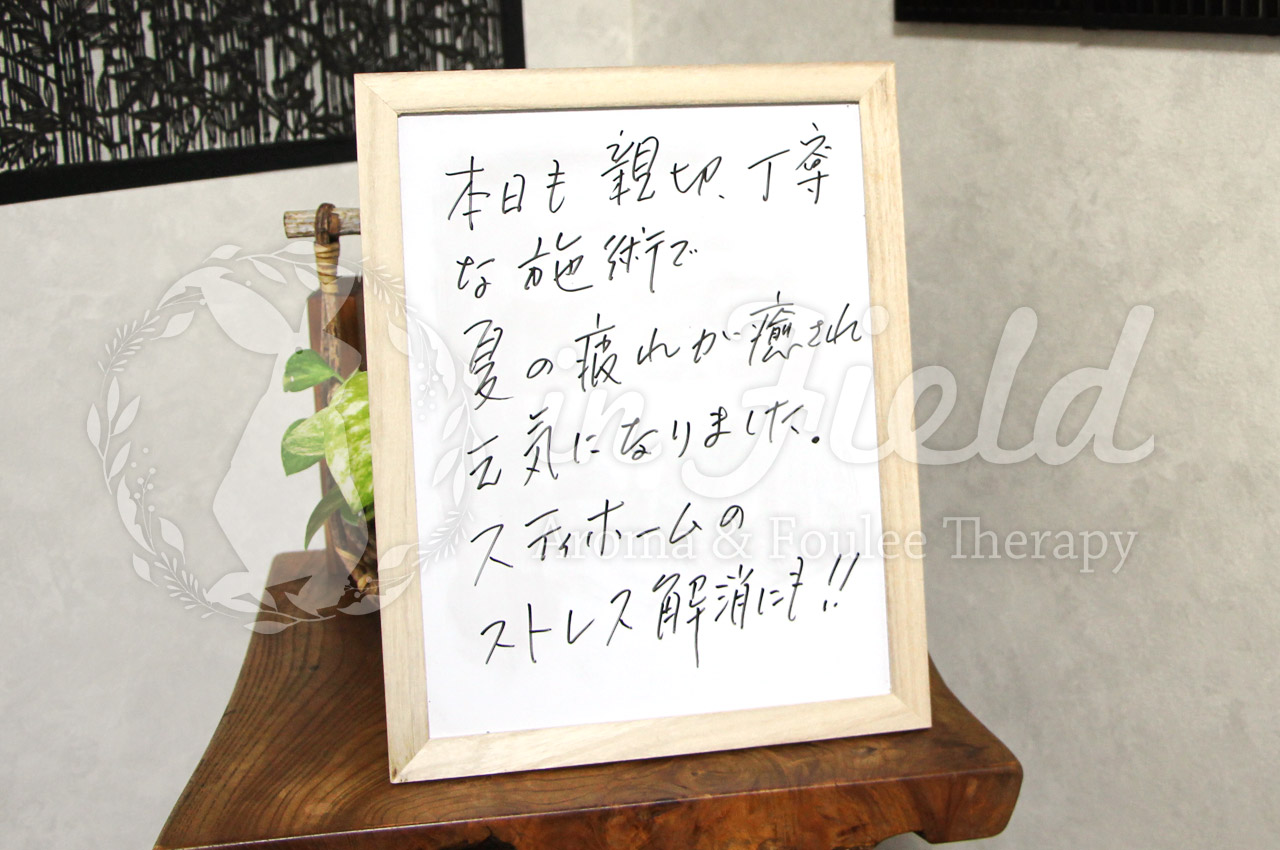 本日も親切、丁寧
な施術で
夏の疲れが癒され
元気になりました。
スティホームの
ストレス解消にも!!
in Field
Aroma & Foulee Therapy